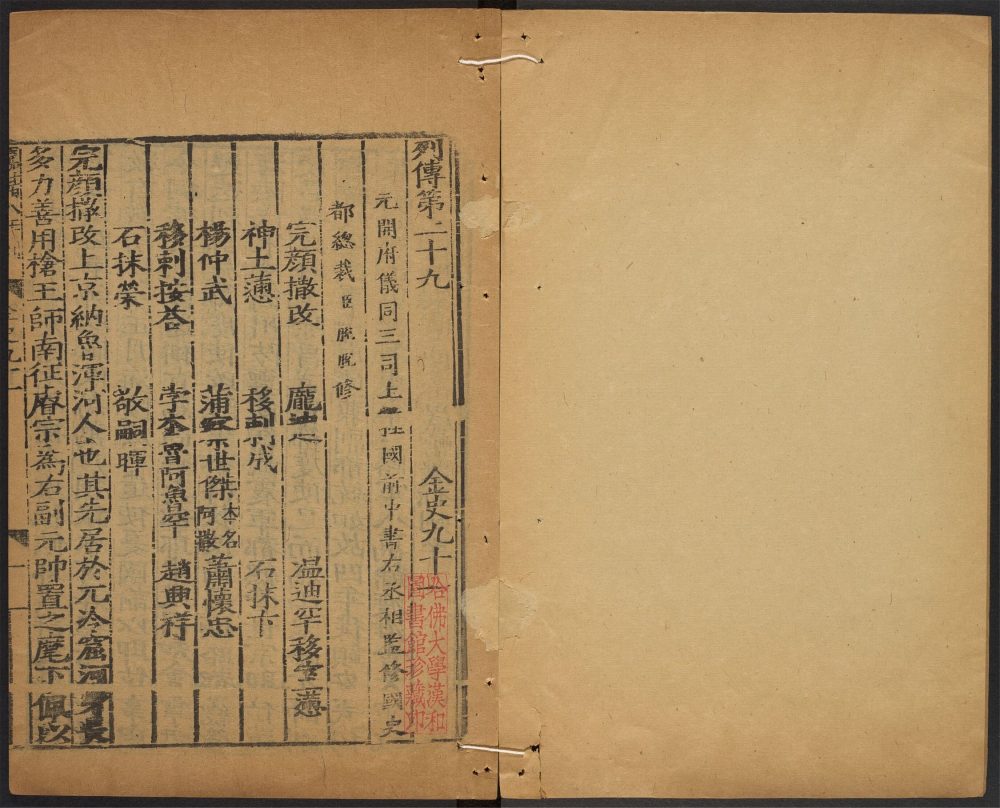 列傳第二十九 金史九十一
元開府儀同三司上柱國前中書右丞相監修國史
都總裁臣脫脫修
完顏撒改 龐迪 温迪罕移室懣
神土懣 移剌成 石抹卞
楊仲武 蒲察世傑本名阿撒 蕭懷忠
移剌按荅 孛术魯阿魯罕 趙興祥
石抹榮 敬嗣暉
完顏撒改上京納魯渾河人也其先居於兀冷窟河身長
多力善用槍王師南征睿宗為右副元帥置之麾下佩以
哈佛大學漢和
圖書館珍藏印